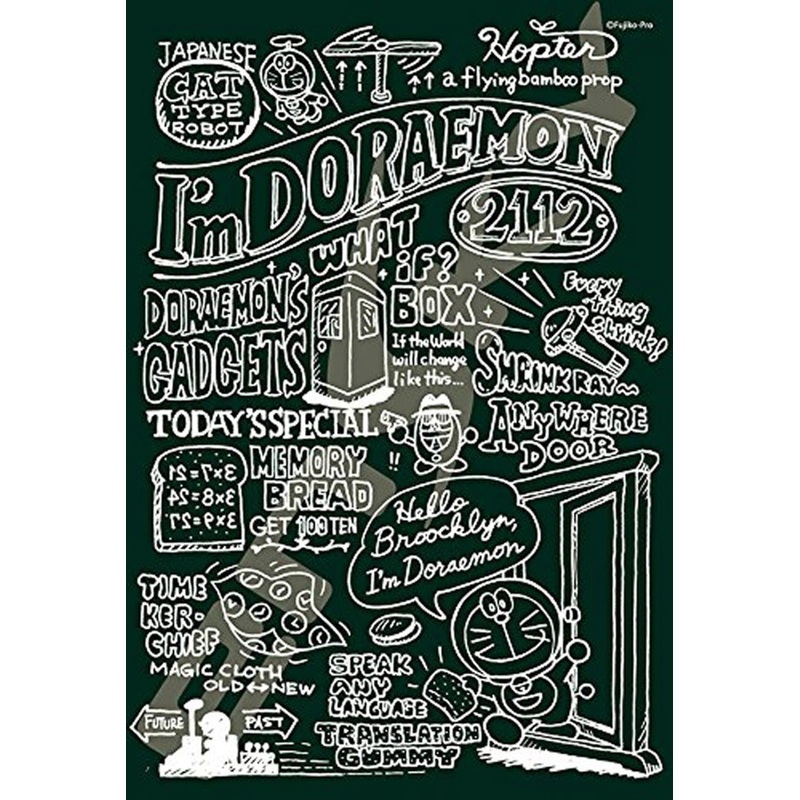 ©Fujiko-Pro
JAPANESE
CAT
TYPE
ROBOT
Hopter
a flying bamboo prop
I'm DORAEMON
2112
WHAT
iF?
BOX
If the World
will change
like this...
DORAEMON'S
GADGETS
Every
thing
Shrink!
SHRINK RAY~
TODAY'S SPECIAL
!!
ANYWHERE
DOOR
3×7=21
3×8=24
3×9=27
MEMORY
BREAD
GET 100 TEN
Hello
Broocklyn,
I'm Doraemon
TIME
KER-
CHIEF
MAGIC CLOTH
OLD↔NEW
SPEAK
ANY
LANGUAGE
TRANSLATION
GUMMY
FUTURE
PAST